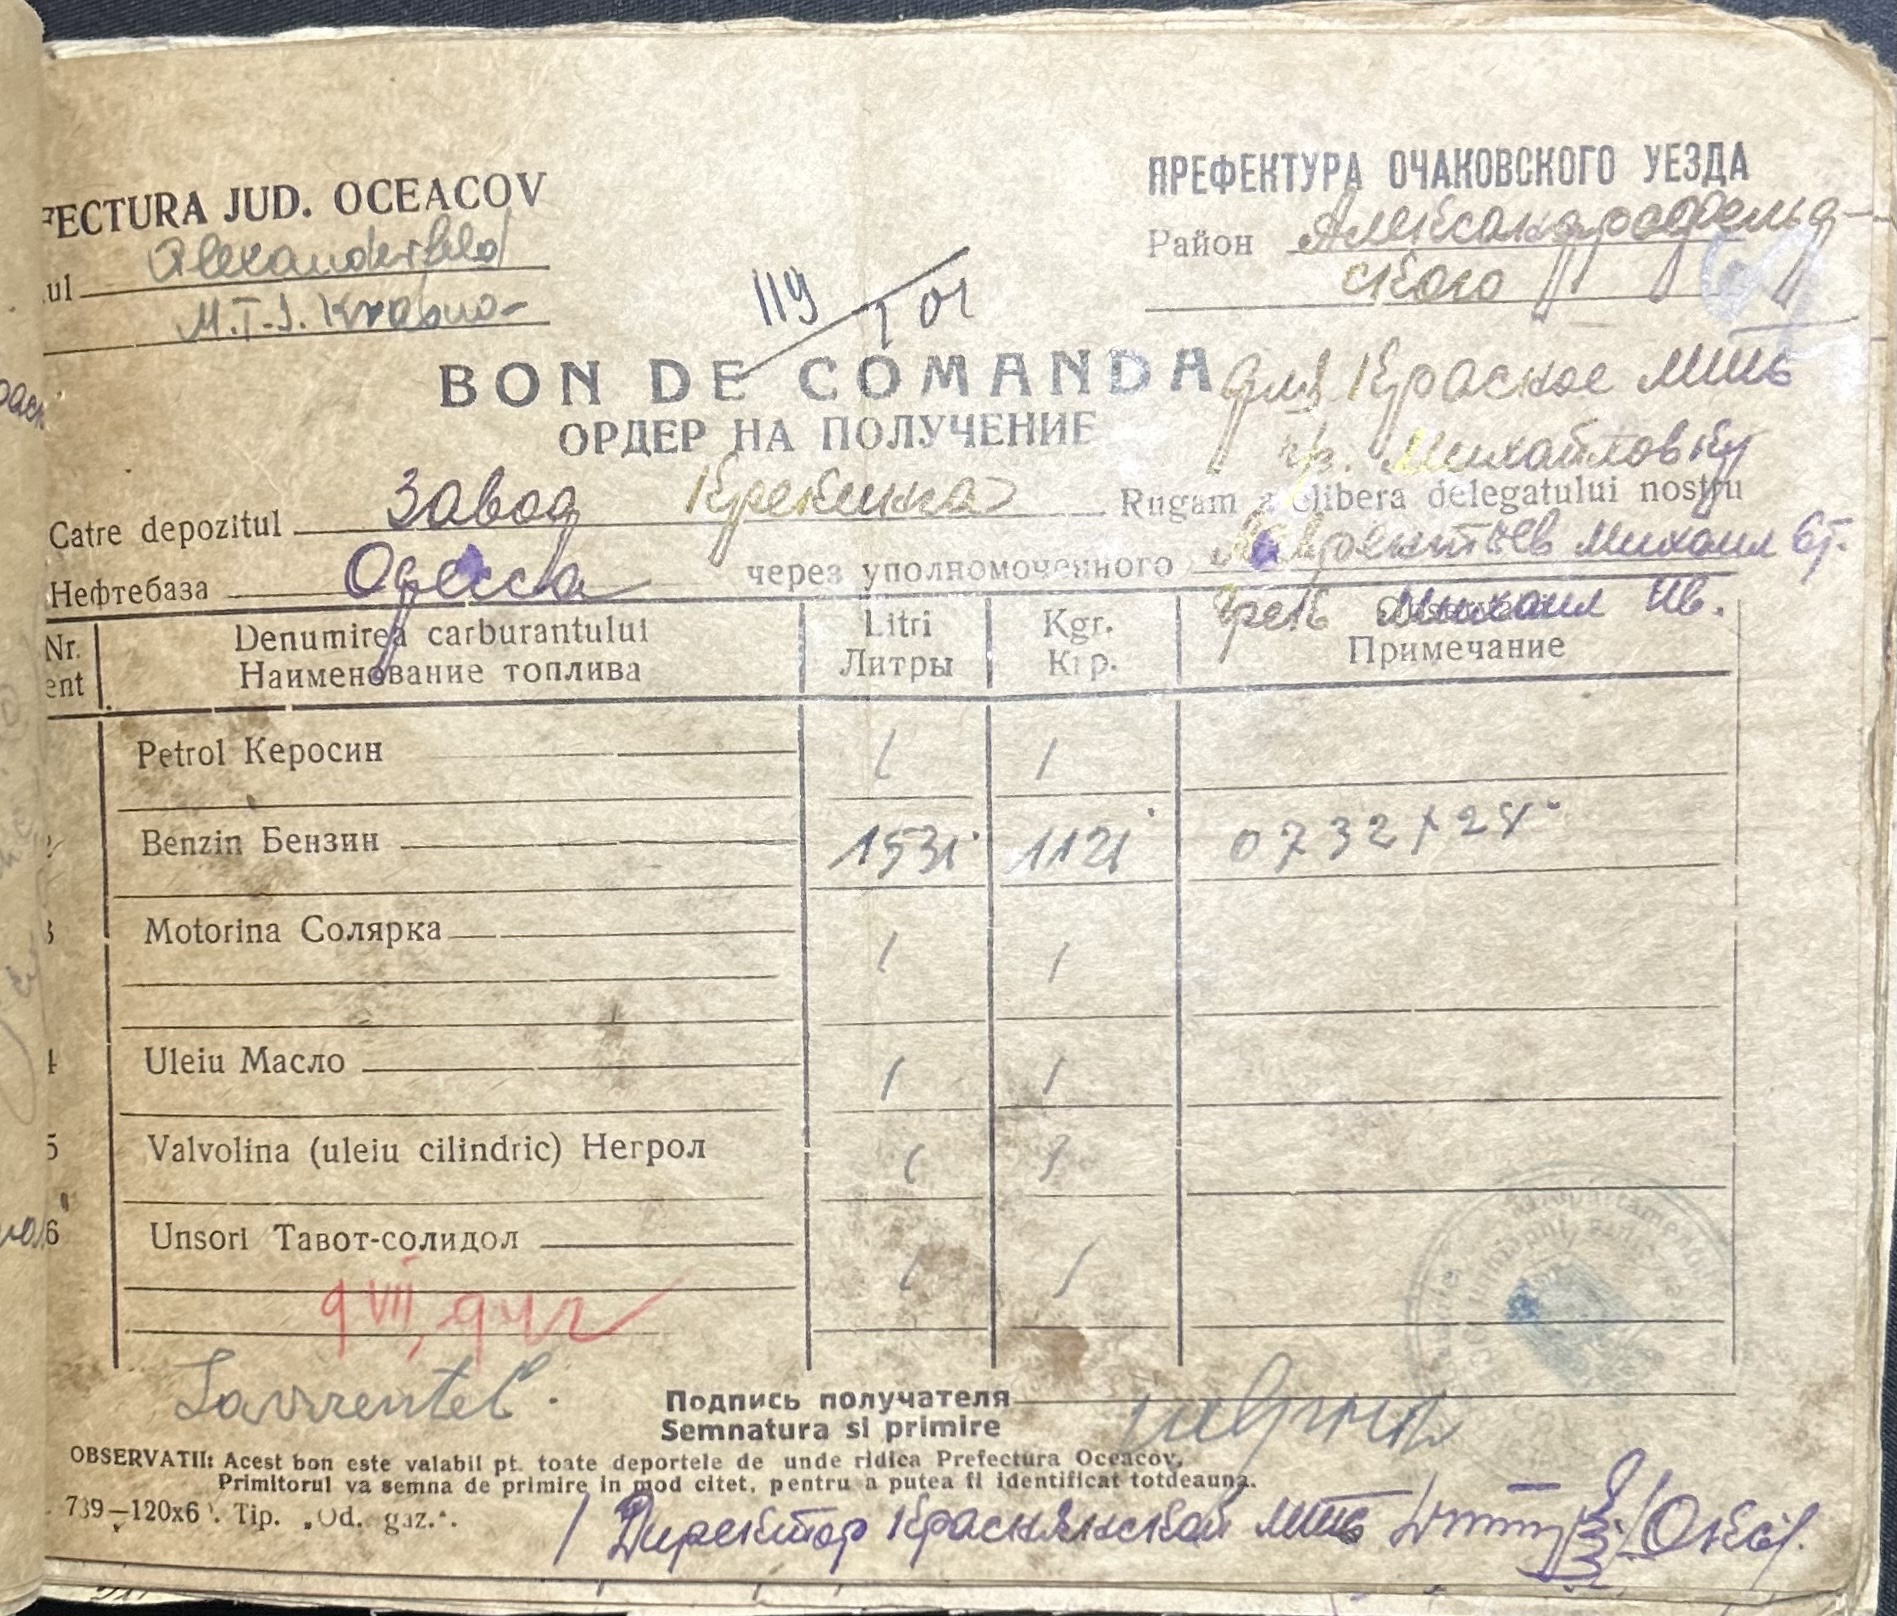 FECTURA JUD. OCEACOV
ПРЕФЕКТУРА ОЧАКОВСКОГО УЕЗДА
ul Alexanderfeld
Район Александрофельд-
ского
M.T.S. Krasno-
119
BON DE COMANDA
для Красное МТС
ОРДЕР НА ПОЛУЧЕНИЕ
гр. Михайловку
Catre depozitul Завод Крекинга Rugam a elibera delegatului nostru
Нефтебаза Одесса через уполномоченного Лаврентьев Михаил
Михаил Ив.
Nr.
ent
Denumirea carburantului
Наименование топлива
Litri
Литры
Kgr.
Кгр.
Примечание
Petrol Керосин
Benzin Бензин 1531 1121 0732+24°
3 Motorina Солярка
4 Uleiu Масло
5 Valvolina (uleiu cilindric) Негрол
6 Unsori Тавот-солидол
9 VII, 942
Подпись получателя
Semnatura si primire
OBSERVATII: Acest bon este valabil pt. toate deportele de unde ridica Prefectura Oceacov,
Primitorul va semna de primire in mod citet, pentru a putea fi identificat totdeauna.
739—120x6 . Tip. „Od. gaz.".
Директор Краснянской МТС